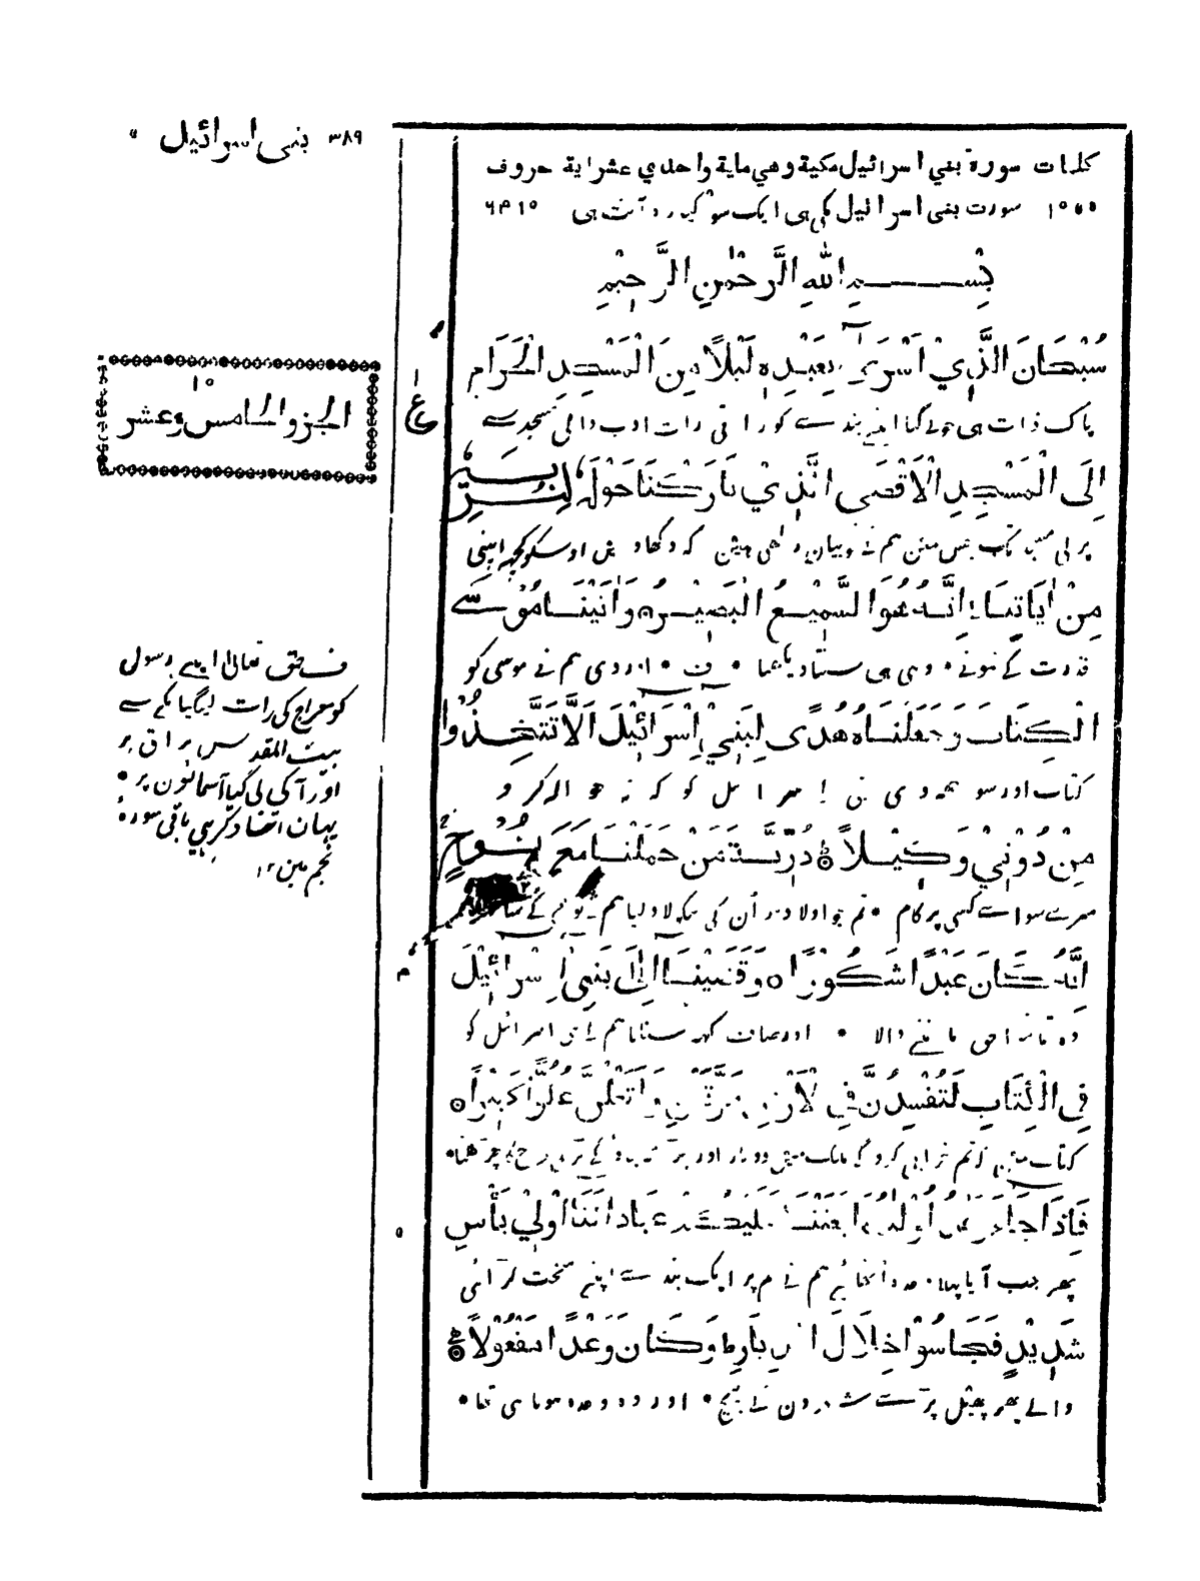 ٣٨٩ بنی اسرائیل
كلمات سورة بني اسرائيل مكية وهي ماية واحدي عشراية حروف
سورت بنی اسرائیل مکی ہی ایک سو آیت ہی ٦٤١٠
بِسْمِ اللهِ الرَّحْمٰنِ الرَّحِيْمِ
سُبْحَانَ الَّذِيْ اَسْرٰى بِعَبْدِهٖ لَيْلًا مِنَ الْمَسْجِدِ الْحَرَامِ
پاک ذات ہی جو لے گیا اپنے بندے کو راتی رات ادب والی مسجد سے
اِلَى الْمَسْجِدِ الْاَقْصَى الَّذِيْ بَارَكْنَا حَوْلَهٗ لِنُرِيَهٗ
پرلی مسجد تک جس مین ہم نے خوبیان رکھی ہین کہ دکھاوین اوسکو کچھ اپنی
مِنْ اٰيَاتِنَا اِنَّهٗ هُوَ السَّمِيْعُ الْبَصِيْرُ ٥ وَاٰتَيْنَا مُوْسَى
قدرت کے نمونے ٠ وہی ہی سنتا دیکھتا ٠ ف ٠ اور دی ہم نے موسی کو
الْكِتَابَ وَجَعَلْنَاهُ هُدًى لِبَنِيْ اِسْرَائِيْلَ اَلَّا تَتَّخِذُوْا
کتاب اور سوجھہ دی بنی اسرائیل کو کہ نہ حوالہ کرو
مِنْ دُوْنِيْ وَكِيْلًا ٥ ذُرِّيَّةَ مَنْ حَمَلْنَا مَعَ نُوْحٍ
میرے سوا کسی پر کام ٠ تم جو اولاد ہو اُن کی لاد لیا ہم نے نوح کے
اِنَّهٗ كَانَ عَبْدًا شَكُوْرًا ٥ وَقَضَيْنَا اِلٰى بَنِيْ اِسْرَائِيْلَ
وہ تھا حق ماننے والا ٠ اور صاف کہہ سنایا ہم نے بنی اسرائیل کو
فِي الْكِتَابِ لَتُفْسِدُنَّ فِي الْاَرْضِ مَرَّتَيْنِ وَلَتَعْلُنَّ عُلُوًّا كَبِيْرًا ٥
کتاب مین کہ تم خرابی کروگے ملک مین دو بار اور چڑھنا ٠
فَاِذَا جَاءَ وَعْدُ اُوْلٰهُمَا بَعَثْنَا عَلَيْكُمْ عِبَادًا لَنَا اُولِيْ بَأْسٍ
پھر جب آیا پہلا وعدہ اٹھائے ہم نے تم پر ایک بندے اپنے سخت لڑائی
شَدِيْدٍ فَجَاسُوْا خِلَالَ الدِّيَارِ ط وَكَانَ وَعْدًا مَفْعُوْلًا ٥
والے پھر پھیل پڑے شہرون کے بیچ ٠ اور وہ وعدہ ہونا ہی تھا ٠
١٥
الجزو الخامس وعشر
ع
ف حق تعالی اپنے رسول
کو معراج کی رات لیگیا مکے سے
بیت المقدس براق پر
اور آگی لی گیا آسمانون پر ٠
یہان اتنا ذکر ہی باقی سورۂ
نجم مین ١٢